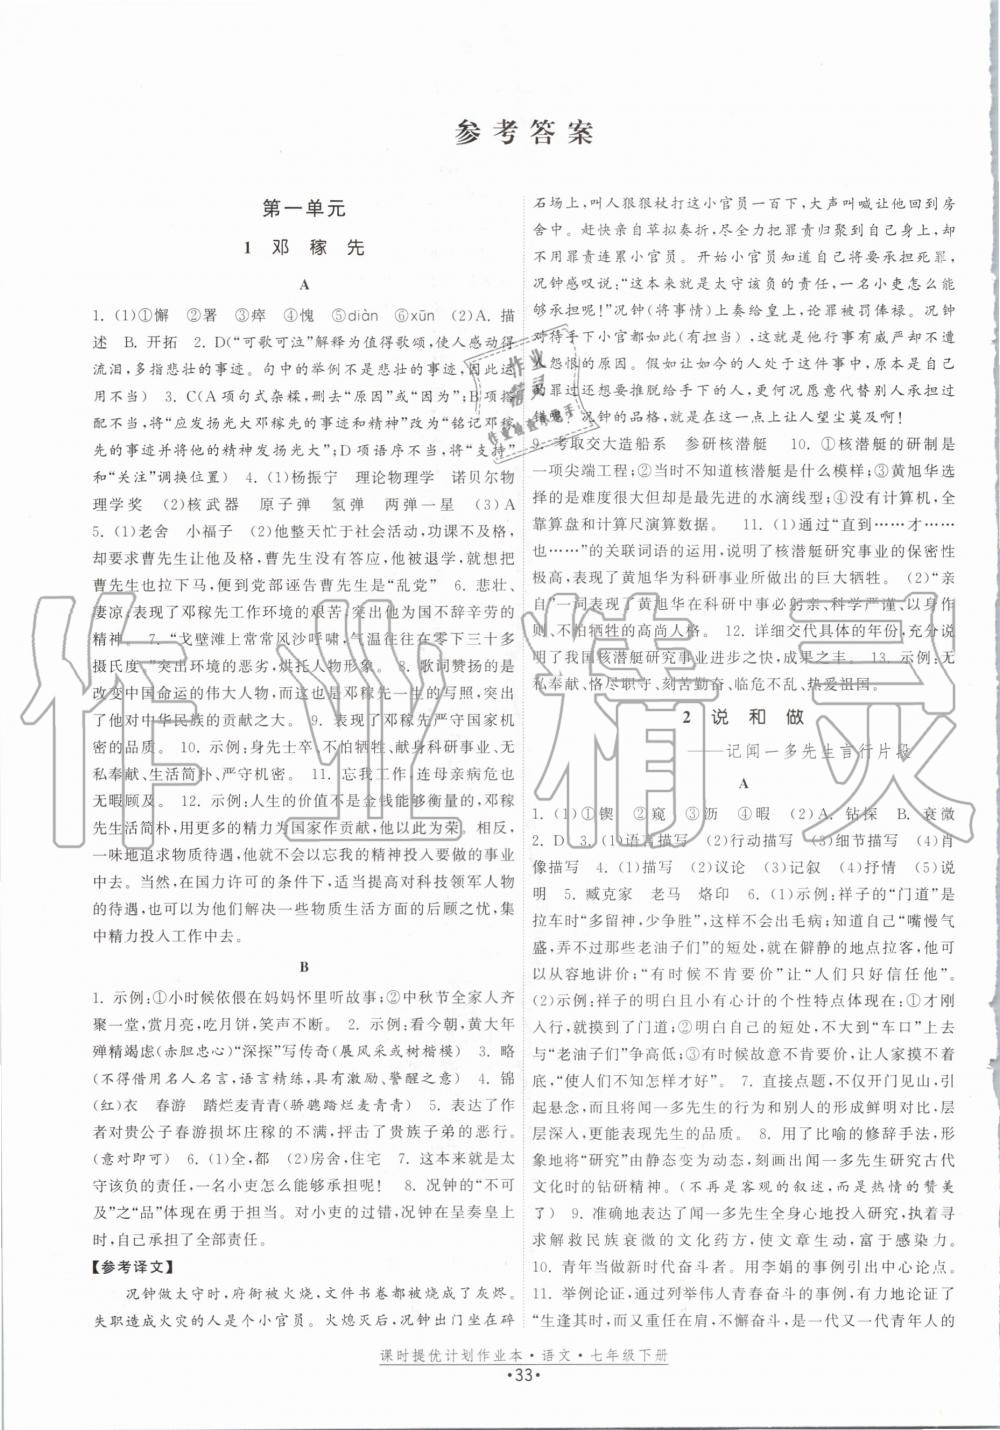 参考答案
第一单元
1 邓稼先
A
1. (1)①懈 ②署 ③瘁 ④愧 ⑤diàn ⑥xūn (2)A. 描
述 B. 开拓 2. D(“可歌可泣”解释为值得歌颂,使人感动得
流泪,多指悲壮的事迹。句中的举例不是悲壮的事迹,此处运
用不当) 3. C(A项句式杂糅,删去“原因”或“因为”;B项搭
配不当,将“应发扬光大邓稼先的事迹和精神”改为“应将邓稼
先的事迹并将他的精神发扬光大”;D项语序不当,将“支持”
和“关注”调换位置) 4. (1)杨振宁 理论物理学 诺贝尔物
理学奖 (2)核武器 原子弹 氢弹 两弹一星 (3)A
5. (1)老舍 小福子 (2)他整天忙于社会活动,功课不及格,
却要求曹先生让他及格,曹先生没有答应,他被退学,就想把
曹先生也拉下马,便到党部诬告曹先生是“乱党” 6. 悲壮、
凄凉;表现了邓稼先工作环境的艰苦,突出他为国不辞辛劳的
精神。 7. “戈壁滩上常常风沙呼啸,气温往往在零下三十多
摄氏度”突出环境的恶劣,烘托人物形象。 8. 歌词赞扬的是
改变中国命运的伟大人物,而这正是邓稼先一生的写照,突出
了他对中华民族的贡献之大。 9. 表现了邓稼先严守国家机
密的品质。 10. 示例:身先士卒、不怕牺牲、献身科研事业、无
私奉献、生活简朴、严守机密。 11. 忘我工作,连母亲病危也
无暇顾及。 12. 示例:人生的价值不是金钱能够衡量的,邓稼
先生活简朴,用更多的精力为国家作贡献,他以此为荣。相反,
一味地追求物质待遇,他就无法将自己的精神投入要做的事业
中去。当然,在国力许可的条件下,适当提高对科技领军人物
的待遇,也可以为他们解决一些物质生活方面的后顾之忧,集
中精力投入工作中去。
B
1. 示例:①小时候依偎在妈妈怀里听故事;②中秋节全家人齐
聚一堂,赏月亮,吃月饼,笑声不断。 2. 示例:看今朝,黄大年
殚精竭虑(赤胆忠心)“深探”写传奇(展风采或树楷模) 3. 略
(不得借用名人名言,语言精练,具有激励、警醒之意) 4. 锦
(红)衣 春游 踏烂麦青青(骄骢踏烂麦青青) 5. 表达了作
者对贵公子春游损坏庄稼的不满,抨击了贵族子弟的恶行。
(意对即可) 6. (1)全,都 (2)房舍,住宅 7. 这本来就是太
守该负的责任,一名小吏怎么能够承担呢! 8. 况钟的“不可
及”之“品”体现在勇于担当。对小吏的过错,况钟在呈奏皇上
时,自己承担了全部责任。
【参考译文】
况钟做太守时,府衙被火烧,文件书卷都被烧成了灰烬。
失职造成火灾的人是个小官员。火熄灭后,况钟出门坐在碎
石场上,叫人狠狠杖打这小官员一百下,大声叫喊让他回到房
舍中。赶快亲自草拟奏折,尽全力把罪责归聚到自己身上,却
不用罪责连累小官员。开始小官员自己将要承担死罪,
况钟感叹说:“这本来就是太守该负的责任,一名小吏怎么能
够承担呢!”况钟(将事情)上奏给皇上,论罪是被罚俸禄。况钟
对待手下小官都能(有担当),这就是他行事有威严却不遭
人怨恨的原因。假比如今的人处于这件事中,原本是自己
犯罪过还想要推脱给手下的人,况且何况愿意代替别人承担罪
责!况钟的品格,就在这一点上让人望尘莫及啊!
9. 考取交大造船系 参研核潜艇 10. ①核潜艇的研制是
一项尖端工程;②当时不知道核潜艇是什么模样;③黄旭华选
择的是难度很大但却是最先进的水滴线型;④没有计算机,全
靠算盘和计算尺演算数据。 11. (1)通过“直到……才……
也……”的关联词语的运用,说明了核潜艇研究事业的保密性
极高,表现了黄旭华为科研事业所做出的巨大牺牲。 (2)“亲
自”一词表现了黄旭华在科研中事必躬亲、科学严谨、以身作
则、不怕牺牲的高尚人格。 12. 详细交代具体的年份,充分说
明了我国核潜艇研究事业进步之快,成果之丰。 13. 示例:无
私奉献、恪尽职守、刻苦勤奋、临危不乱、热爱祖国。
2 说和做
——记闻一多先生言行片段
A
1. (1)①锲 ②窥 ③沥 ④暇 (2)A. 钻探 B. 衰微
2. D 3. (1)语言描写 (2)行动描写 (3)细节描写 (4)肖
像描写 4. (1)描写 (2)议论 (3)记叙 (4)抒情 (5)说
明 5. 臧克家 老马 烙印 6. (1)示例:祥子的“门道”是
拉车时“多留神,少争胜”,这样不会出毛病;知道自己“嘴慢气
盛,弄不过那些老油子们”的短处,就在僻静的地点拉客,他可
以从容地讲价;“有时候不肯要价”让“人们只好信任他”。
(2)示例:祥子的明白且小有心计的个性特点体现在:①才刚
入行,就摸到了门道;②明白自己的短处,不大到“车口”上去
与“老油子们”争高低;③有时候不愿意要价,让人家摸不着
底,“使人们不知怎样才好”。 7. 直接点题,不仅开门见山,引
起悬念,而且将闻一多先生的行为和别人的形成鲜明对比,引人
深入,更能表现先生的品质。 8. 用了比喻的修辞手法,形
象地将“研究”由静态变为动态,刻画出闻一多先生研究古代
文化时的钻研精神。(不再是客观的叙述,而是热情的赞美
了) 9. 准确地表达了闻一多先生全身心地投入研究,执着寻求
解救民族衰微的文化药方,使文章生动,富于表现力。
10. 青年当做新时代奋斗者。用李娟的事例引出中心论点。
11. 举例论证,通过列举伟人青春奋斗的事例,有力论证了
“生逢其时,而又重任在肩,不懈奋斗,是一代又一代青年人的
课时提优计划作业本·语文·七年级下册
·33·
作业精灵
作业
精灵
作业检查小帮手